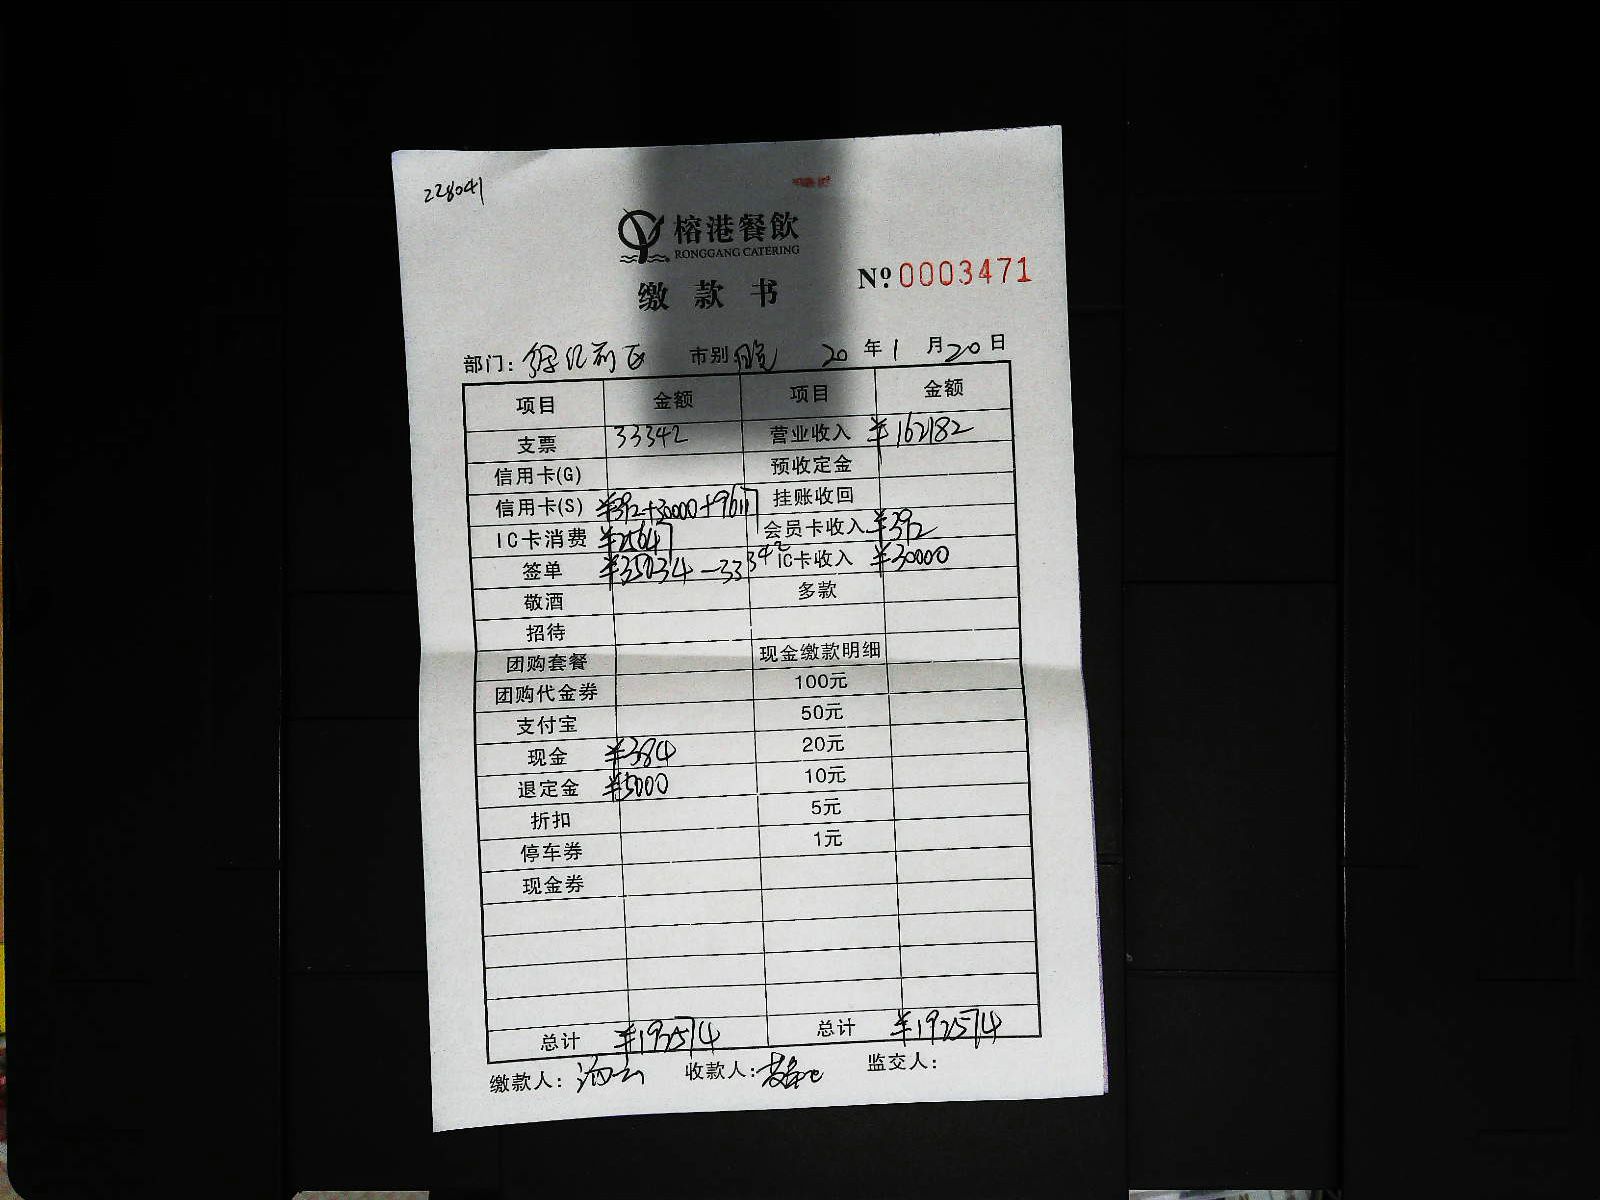 228041
榕港餐飲
RONGGANG CATERING
缴款书
Nº 0003471
部门： 市别 晚 20 年 1 月 20 日
项目 金额 项目 金额
支票 33342 营业收入 ¥162182
信用卡(G) 预收定金
信用卡(S) ¥392+30000+96117 挂账收回
IC卡消费 ¥25647 会员卡收入 ¥392
签单 ¥35034-33342 IC卡收入 ¥30000
敬酒 多款
招待
团购套餐 现金缴款明细
团购代金券 100元
支付宝 50元
现金 ¥384 20元
退定金 ¥5000 10元
折扣 5元
停车券 1元
现金券
总计 ¥192574 总计 ¥192574
缴款人： 收款人： 监交人：